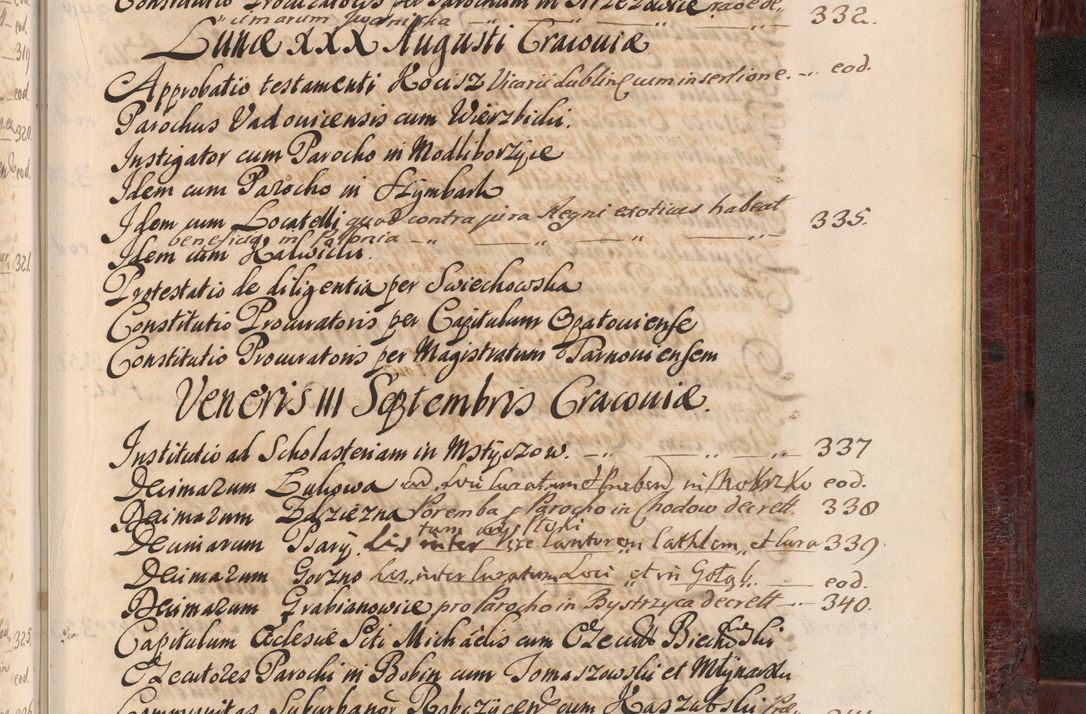 Constitutio Procuratoris per Parochum in Strzezowice
332.
Lunæ XXX Augusti Cracoviæ
Approbatio testamenti Kocisz Vicarii Lublin cum insertione. eod.
Parochus Vadovicensis cum Wierzbicki.
Instigator cum Parocho in Modliborzyce
Idem cum Parocho in Szymbark
Idem cum Locatelli quod contra jura Regni exoticus habeat 335.
beneficia in Polonia
Idem cum Kalwicki.
Protestatio de diligentia per Swiechowska
Constitutio Procuratoris per Capitulum Opatoviense
Constitutio Procuratoris per Magistratum Tarnoviensem
Veneris III Septembris Cracoviæ.
Institutio ad Scholasteriam in Mstyszow. 337
Decimarum Lulowa in Mokrzko eod.
Decimarum Zdziezna Poremba Parocho in Chodow decrett. 338
Decimarum Psary. Lis inter Præcantorem Cathlem et Cura 339
Decimarum Gorzno lis inter Curatum Loci et in Gołąb. eod.
Decimarum Grabianowice pro Parocho in Bystrzyca decrett 340.
Capitulum Ecclesiæ Scti Michaëlis cum Biechowski
Executores Parochi in Bobin cum Tomaszowski et Młynarski
Communitas Suburbanor cum Kaszubski
319
eod.
320
eod.
321
325